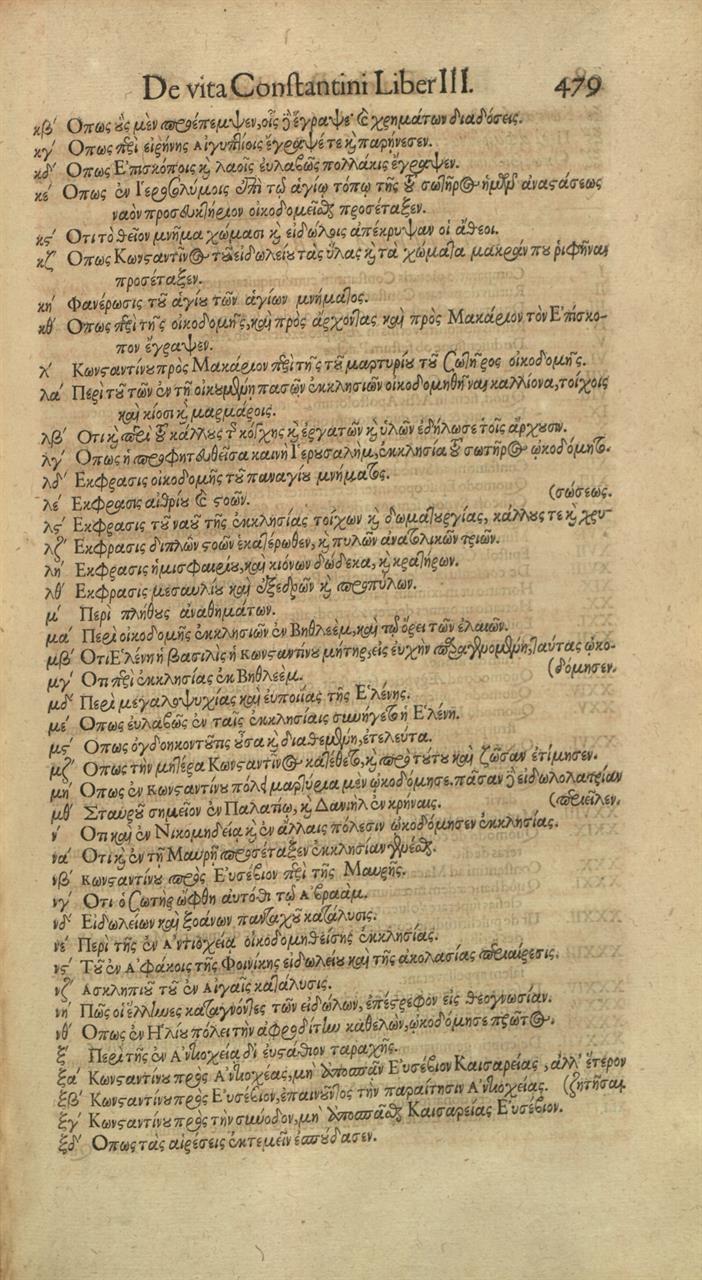 De vita Constantini Liber III. 479
κβ´ Οπως οὓς μὲν προέπεμψεν, οἷς δὲ ἔγραψε καὶ χρημάτων διαδόσεις.
κγ´ Οπως περὶ εἰρήνης Αἰγυπτίοις ἔγραψέ τε καὶ παρῄνεσεν.
κδ´ Οπως Ἐπισκόποις καὶ λαοῖς εὐλαβῶς πολλάκις ἔγραψεν.
κε´ Οπως ἐν Ἱεροσολύμοις ἐπὶ τῷ ἁγίῳ τόπῳ τῆς τοῦ σωτῆρος ἡμῶν ἀναστάσεως
ναὸν προσευκτήριον οἰκοδομεῖσθαι προσέταξεν.
κς´ Οτι τὸ θεῖον μνῆμα χώμασι καὶ εἰδώλοις ἀπέκρυψαν οἱ ἄθεοι.
κζ´ Οπως Κωνσταντῖνος τοῦ εἰδωλείου τὰς ὕλας καὶ τὰ χώματα μακράν που ῥιφῆναι
προσέταξεν.
κη´ Φανέρωσις τοῦ ἁγίου τῶν ἁγίων μνήματος.
κθ´ Οπως περὶ τῆς οἰκοδομῆς, καὶ πρὸς ἄρχοντας καὶ πρὸς Μακάριον τὸν Ἐπίσκο-
πον ἔγραψεν.
λ´ Κωνσταντίνου πρὸς Μακάριον περὶ τῆς τοῦ μαρτυρίου τοῦ Σωτῆρος οἰκοδομῆς.
λα´ Περὶ τοῦ τῶν ἐν τῇ οἰκουμένῃ πασῶν ἐκκλησιῶν οἰκοδομηθῆναι καλλίονα, τοίχοις
καὶ κίοσι καὶ μαρμάροις.
λβ´ Οτι καὶ περὶ τοῦ κάλλους τῆς κόγχης καὶ ἐργατῶν καὶ ὑλῶν ἐδήλωσε τοῖς ἄρχουσιν.
λγ´ Οπως ἡ προφητευθεῖσα καινὴ Ἱερουσαλὴμ, ἐκκλησία τοῦ σωτῆρος ᾠκοδόμητο.
λδ´ Εκφρασις οἰκοδομῆς τοῦ παναγίου μνήματος.
λε´ Εκφρασις αἰθρίου καὶ στοῶν. (σώσεως.
λς´ Εκφρασις τοῦ ναοῦ τῆς ἐκκλησίας τοίχων καὶ δωματουργίας, κάλλους τε καὶ χρυ-
λζ´ Εκφρασις διπλῶν στοῶν ἑκατέρωθεν, καὶ πυλῶν ἀνατολικῶν τριῶν.
λη´ Εκφρασις ἡμισφαιρίου, καὶ κιόνων δώδεκα, καὶ κρατήρων.
λθ´ Εκφρασις μεσαυλίου καὶ ἐξεδρῶν καὶ προπύλων.
μ´ Περὶ πλήθους ἀναθημάτων.
μα´ Περὶ οἰκοδομῆς ἐκκλησιῶν ἐν Βηθλεὲμ, καὶ τῷ ὄρει τῶν ἐλαιῶν.
μβ´ Οτι Ἑλένη ἡ βασιλὶς ἡ Κωνσταντίνου μήτηρ, εἰς εὐχὴν παραγενομένη, ταύτας ᾠκο-
μγ´ Οπ περὶ ἐκκλησίας ἐκ Βηθλεέμ. (δόμησεν.
μδ´ Περὶ μεγαλοψυχίας καὶ εὐποιΐας τῆς Ἑλένης.
με´ Οπως εὐλαβῶς ἐν ταῖς ἐκκλησίαις συνήγετο ἡ Ἑλένη.
μς´ Οπως ὀγδοηκοντοῦτις οὖσα καὶ διαθεμένη, ἐτελεύτα.
μζ´ Οπως τὴν μητέρα Κωνσταντῖνος κατέθετο, καὶ πρὸ τούτου καὶ ζῶσαν ἐτίμησεν.
μη´ Οπως ἐν Κωνσταντίνου πόλει μαρτύρια μὲν ᾠκοδόμησε, πᾶσαν δὲ εἰδωλολατρίαν
μθ´ Σταυροῦ σημεῖον ἐν Παλατίῳ, καὶ Δανιὴλ ἐν κρήναις. (περιεῖλεν.
ν´ Οπ καὶ ἐν Νικομηδείᾳ καὶ ἐν ἄλλαις πόλεσιν ᾠκοδόμησεν ἐκκλησίας.
να´ Οτι καὶ ἐν τῇ Μαυρῆ προσέταξεν ἐκκλησίαν γενέσθαι.
νβ´ Κωνσταντίνου πρὸς Εὐσέβιον περὶ τῆς Μαυρῆς.
νγ´ Οτι ὁ Σωτὴρ ὤφθη αὐτόθι τῷ Ἀβραάμ.
νδ´ Εἰδωλείων καὶ ξοάνων πανταχοῦ κατάλυσις.
νε´ Περὶ τῆς ἐν Ἀντιοχείᾳ οἰκοδομηθείσης ἐκκλησίας.
νς´ Τοῦ ἐν Ἀφάκοις τῆς Φοινίκης εἰδωλείου καὶ τῆς ἀκολασίας περιαίρεσις.
νζ´ Ασκληπιοῦ τοῦ ἐν Αἰγαῖς κατάλυσις.
νη´ Πῶς οἱ ἕλληνες καταγνόντες τῶν εἰδώλων, ἐπέστρεφον εἰς θεογνωσίαν.
νθ´ Οπως ἐν Ἡλίου πόλει τὴν ἀφροδίτην καθελὼν, ᾠκοδόμησε πρῶτος.
ξ´ Περὶ τῆς ἐν Ἀντιοχείᾳ δι' εὐστάθιον ταραχῆς.
ξα´ Κωνσταντίνου πρὸς Ἀντιοχέας, μὴ ἀποσπᾶν Εὐσέβιον Καισαρείας, ἀλλ' ἕτερον
ξβ´ Κωνσταντίνου πρὸς Εὐσέβιον, ἐπαινοῦντος τὴν παραίτησιν Ἀντιοχείας. (ζητῆσαι.
ξγ´ Κωνσταντίνου πρὸς τὴν σύνοδον, μὴ ἀποσπᾶσθαι Καισαρείας Εὐσέβιον.
ξδ´ Οπως τὰς αἱρέσεις ἐκτεμεῖν ἐσπούδασεν.